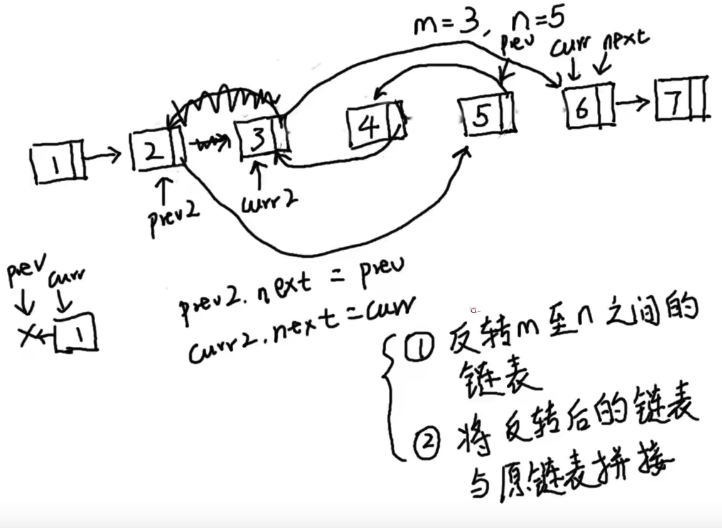 m=3, n=5
prev curr next
1 2 3 4 5 6 7
prev2 curr2
prev curr
1
prev2.next = prev
curr2.next=curr
① 反转m至n之间的
链表
② 将反转后的链表
与原链表拼接